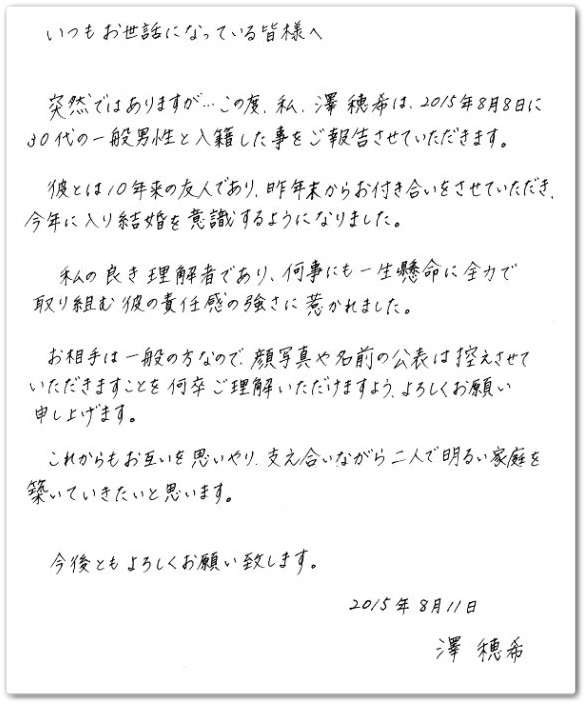 いつもお世話になっている皆様へ
突然ではありますが…この度、私、澤 穂希は、2015年8月8日に
30代の一般男性と入籍した事をご報告させていただきます。
彼とは10年来の友人であり、昨年末からお付き合いをさせていただき、
今年に入り結婚を意識するようになりました。
私の良き理解者であり、何事にも一生懸命に全力で
取り組む彼の責任感の強さに惹かれました。
お相手は一般の方なので、顔写真や名前の公表は控えさせて
いただきますことを何卒ご理解いただけますよう、よろしくお願い
申し上げます。
これからもお互いを思いやり、支え合いながら二人で明るい家庭を
築いていきたいと思います。
今後ともよろしくお願い致します。
2015年8月11日
澤 穂希